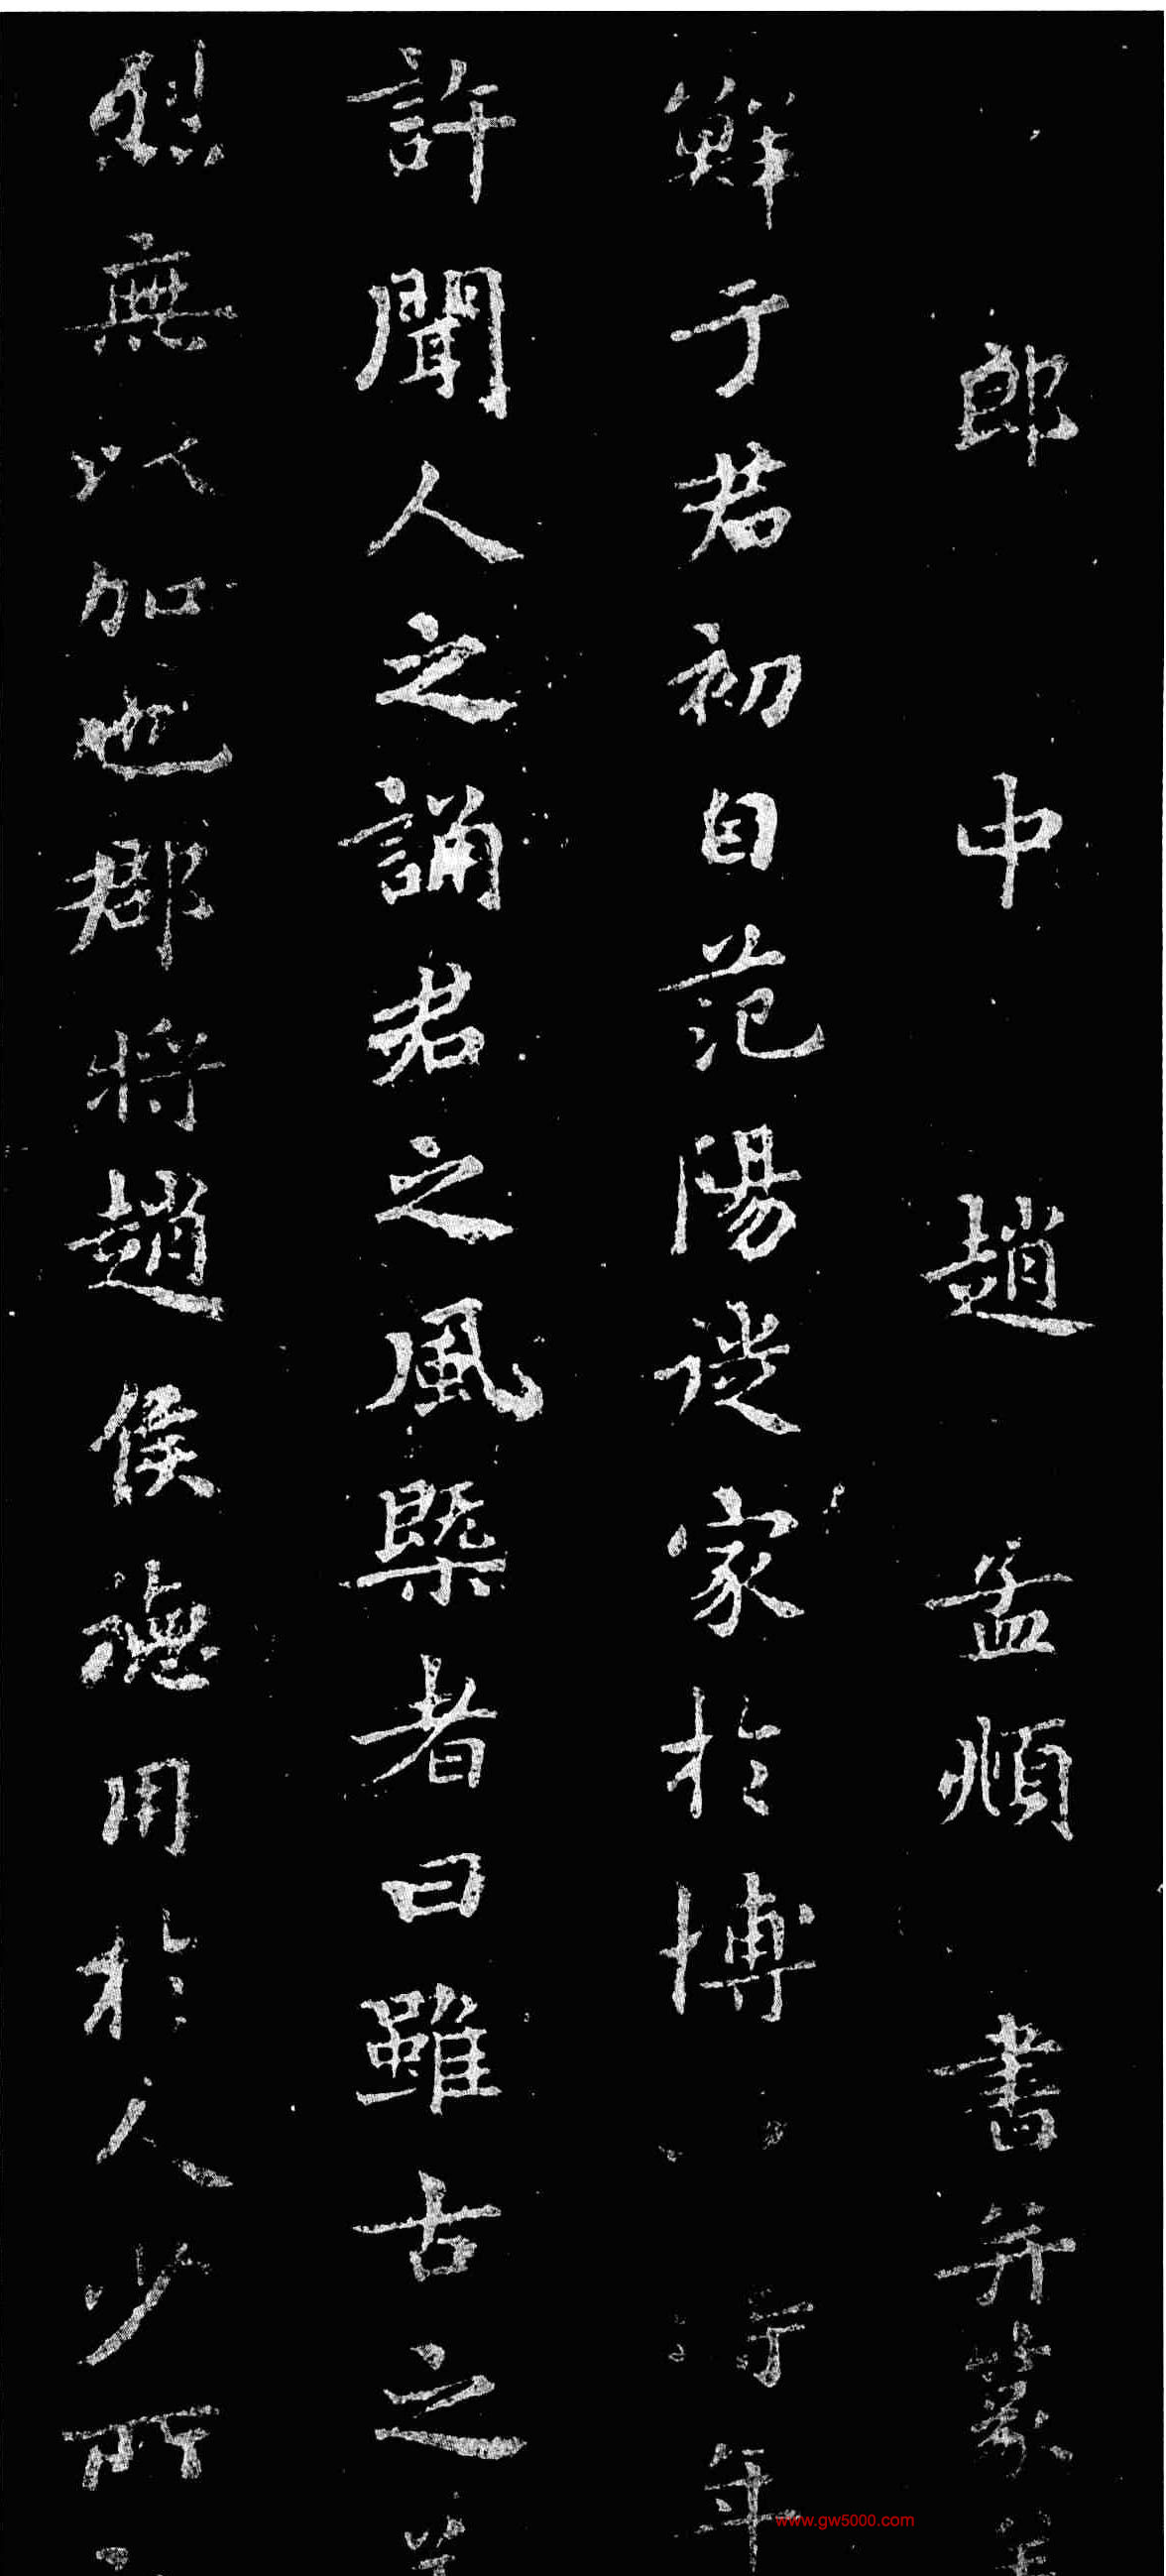 郎中趙孟頫書并篆
鮮于君初自范陽徙家於博 時年
許聞人之誦君之風槩者曰雖古之
烈無以加也郡將趙侯德用於人少所
www.gw5000.com